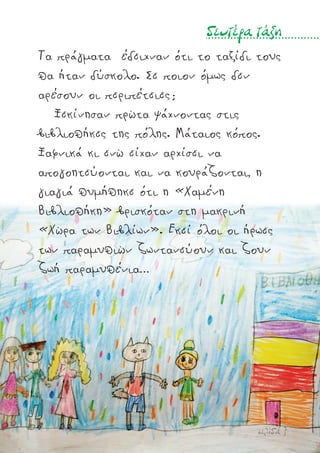 Δευτέρα τάξη
Τα πράγματα έδειχναν ότι το ταξίδι τους
θα ήταν δύσκολο. Σε ποιον όμως δεν
αρέσουν οι περιπέτειες;
Ξεκίνησαν πρώτα ψάχνοντας στις
βιβλιοθήκες της πόλης. Μάταιος κόπος.
Ξαφνικά κι ενώ είχαν αρχίσει να
απογοητεύονται και να κουράζονται, η
γιαγιά θυμήθηκε ότι η «Χαμένη
Βιβλιοθήκη» βρισκόταν στη μακρινή
«Χώρα των Βιβλίων». Εκεί όλοι οι ήρωες
των παραμυθιών ζωντανεύουν και ζουν
ζωή παραμυθένια...
ΒΙΒΛΙΟΘΗ
σελίδα